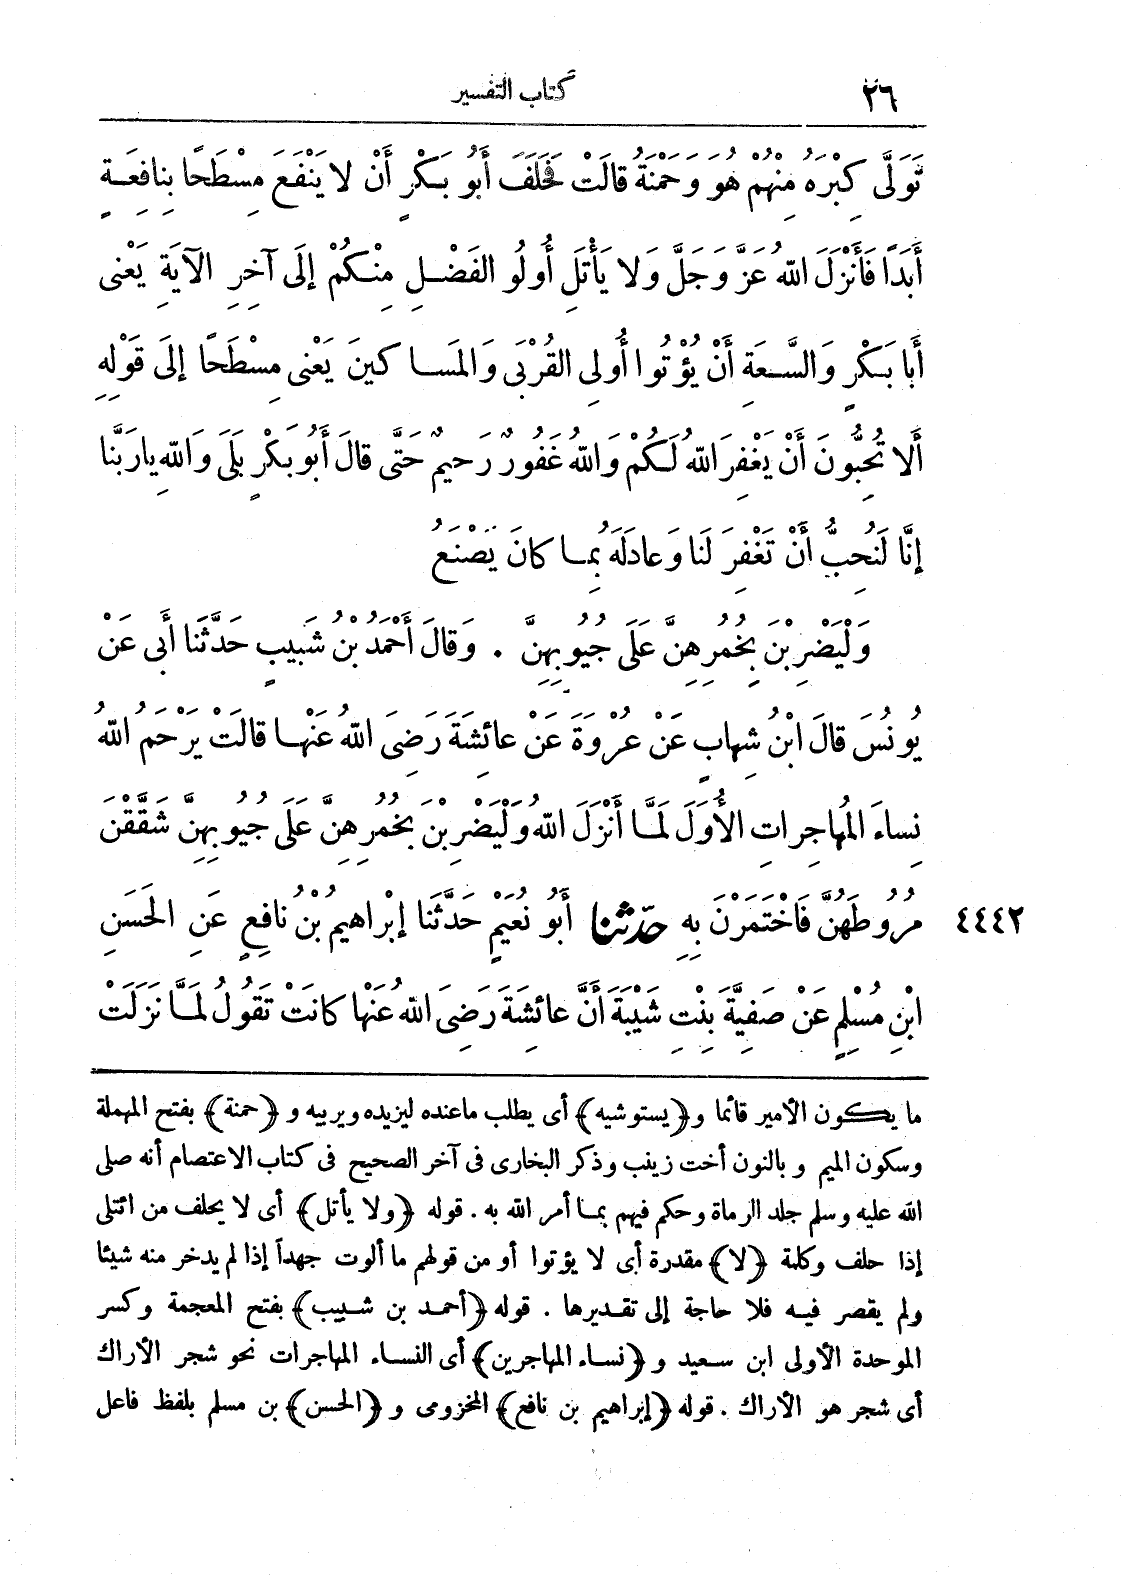 ٢٦ كتاب التفسير
تَوَلَّى كِبْرَهُ مِنْهُمْ هُوَ وَحَمْنَةُ قالَتْ فَحَلَفَ أَبُو بَكْرٍ أَنْ لا يَنْفَعَ مِسْطَحًا بِنافِعَةٍ
أَبَدًا فَأَنْزَلَ اللهُ عَزَّ وَجَلَّ وَلا يَأْتَلِ أُولُو الفَضْلِ مِنْكُمْ إلَى آخِرِ الآيَةِ يَعْنى
أَبا بَكْرٍ وَالسَّعَةِ أَنْ يُؤْتُوا أُولِى القُرْبَى وَالمَساكينَ يَعْنى مِسْطَحًا إلَى قَوْلِهِ
أَلا تُحِبُّونَ أَنْ يَغْفِرَ اللهُ لَكُمْ وَاللهُ غَفُورٌ رَحيمٌ حَتَّى قالَ أَبُو بَكْرٍ بَلَى وَاللهِ يارَبَّنا
إنَّا لَنُحِبُّ أَنْ تَغْفِرَ لَنا وَعادَلَهُ بِما كانَ يَصْنَعُ
وَلْيَضْرِبْنَ بِخُمُرِهِنَّ عَلَى جُيُوبِهِنَّ . وَقالَ أَحْمَدُ بْنُ شَبِيبٍ حَدَّثَنا أَبى عَنْ
يُونُسَ قالَ ابْنُ شِهابٍ عَنْ عُرْوَةَ عَنْ عائِشَةَ رَضِىَ اللهُ عَنْها قالَتْ يَرْحَمُ اللهُ
نِساءَ المُهاجِراتِ الأُوَلَ لَمَّا أَنْزَلَ اللهُ وَلْيَضْرِبْنَ بِخُمُرِهِنَّ عَلَى جُيُوبِهِنَّ شَقَّقْنَ
٤٤٤٢ مُرُوطَهُنَّ فَاخْتَمَرْنَ بِهِ حدّثنا أَبُو نُعَيْمٍ حَدَّثَنا إبْراهيمُ بْنُ نافِعٍ عَنِ الحَسَنِ
ابْنِ مُسْلِمٍ عَنْ صَفِيَّةَ بِنْتِ شَيْبَةَ أَنَّ عائِشَةَ رَضِىَ اللهُ عَنْها كانَتْ تَقُولُ لَمَّا نَزَلَتْ
ما يكون الأمير قائما و﴿يستوشيه﴾ أى يطلب ماعنده ليزيده ويربيه و ﴿حمنة﴾ بفتح المهملة
وسكون الميم و بالنون أخت زينب وذكر البخارى فى آخر الصحيح فى كتاب الاعتصام أنه صلى
الله عليه وسلم جلد الرماة وحكم فيهم بما أمر الله به . قوله ﴿ولا يأتل﴾ أى لا يحلف من ائتلى
إذا حلف وكلمة ﴿لا﴾ مقدرة أى لا يؤتوا أو من قولهم ما ألوت جهداً إذا لم يدخر منه شيئا
ولم يقصر فيه فلا حاجة إلى تقديرها . قوله ﴿أحمد بن شبيب﴾ بفتح المعجمة وكسر
الموحدة الأولى ابن سعيد و ﴿نساء المهاجرين﴾ أى النساء المهاجرات نحو شجر الأراك
أى شجر هو الأراك . قوله ﴿إبراهيم بن نافع﴾ المخزومى و ﴿الحسن﴾ بن مسلم بلفظ فاعل